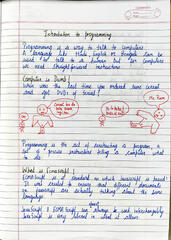 Introduction to programming
Programming is a way to talk to computers
A language like Hindi English or Bengali can be
used to talk to a human but for computers
we need straightforward instructions
Computer is Dumb!
When was the last time you ordered some cereal
and got DVDs of Serial?
Programming is the act of constructing a program, a
set of precise instructions telling a computer what
to do
What is ECMAScript?
ECMAScript is a standard on which JavaScript is based!
It was created to ensure that different documents
on javascript are actually talking about the same
language
JavaScript & ECMAScript can always be used interchangeably
JavaScript is very liberal in what it allows